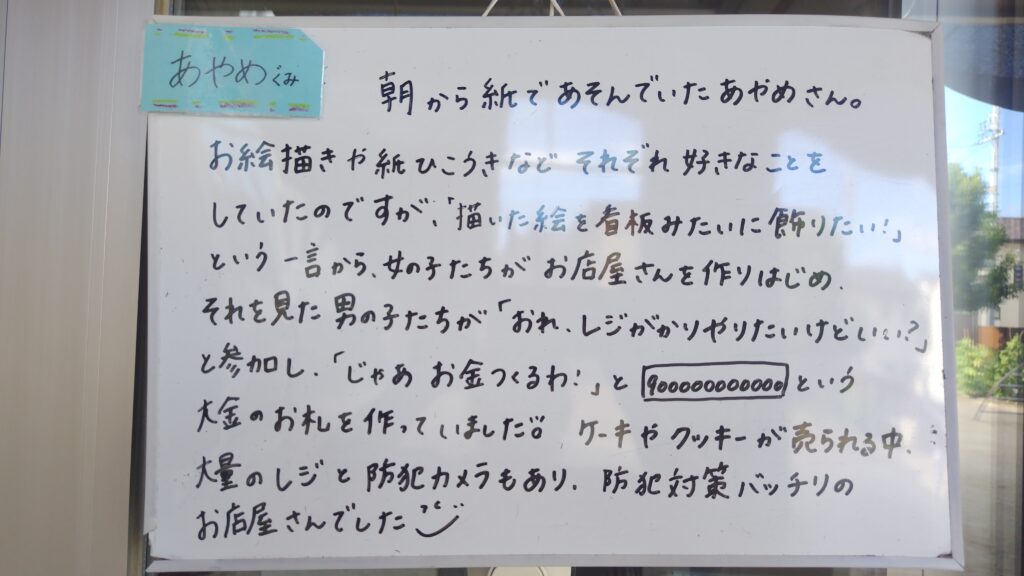 あやめぐみ
朝から紙であそんでいたあやめさん。
お絵描きや紙ひこうきなど それぞれ 好きなことを
していたのですが、「描いた絵を看板みたいに飾りたい!」
という一言から、女の子たちが お店屋さんを作りはじめ、
それを見た男の子たちが「おれ、レジがかりやりたいけどいい?」
と参加し、「じゃあ お金つくるわ!」と 9000000000000 という
大金のお札を作っていました。 ケーキやクッキーが売られる中、
大量のレジと防犯カメラもあり、防犯対策バッチリの
お店屋さんでした